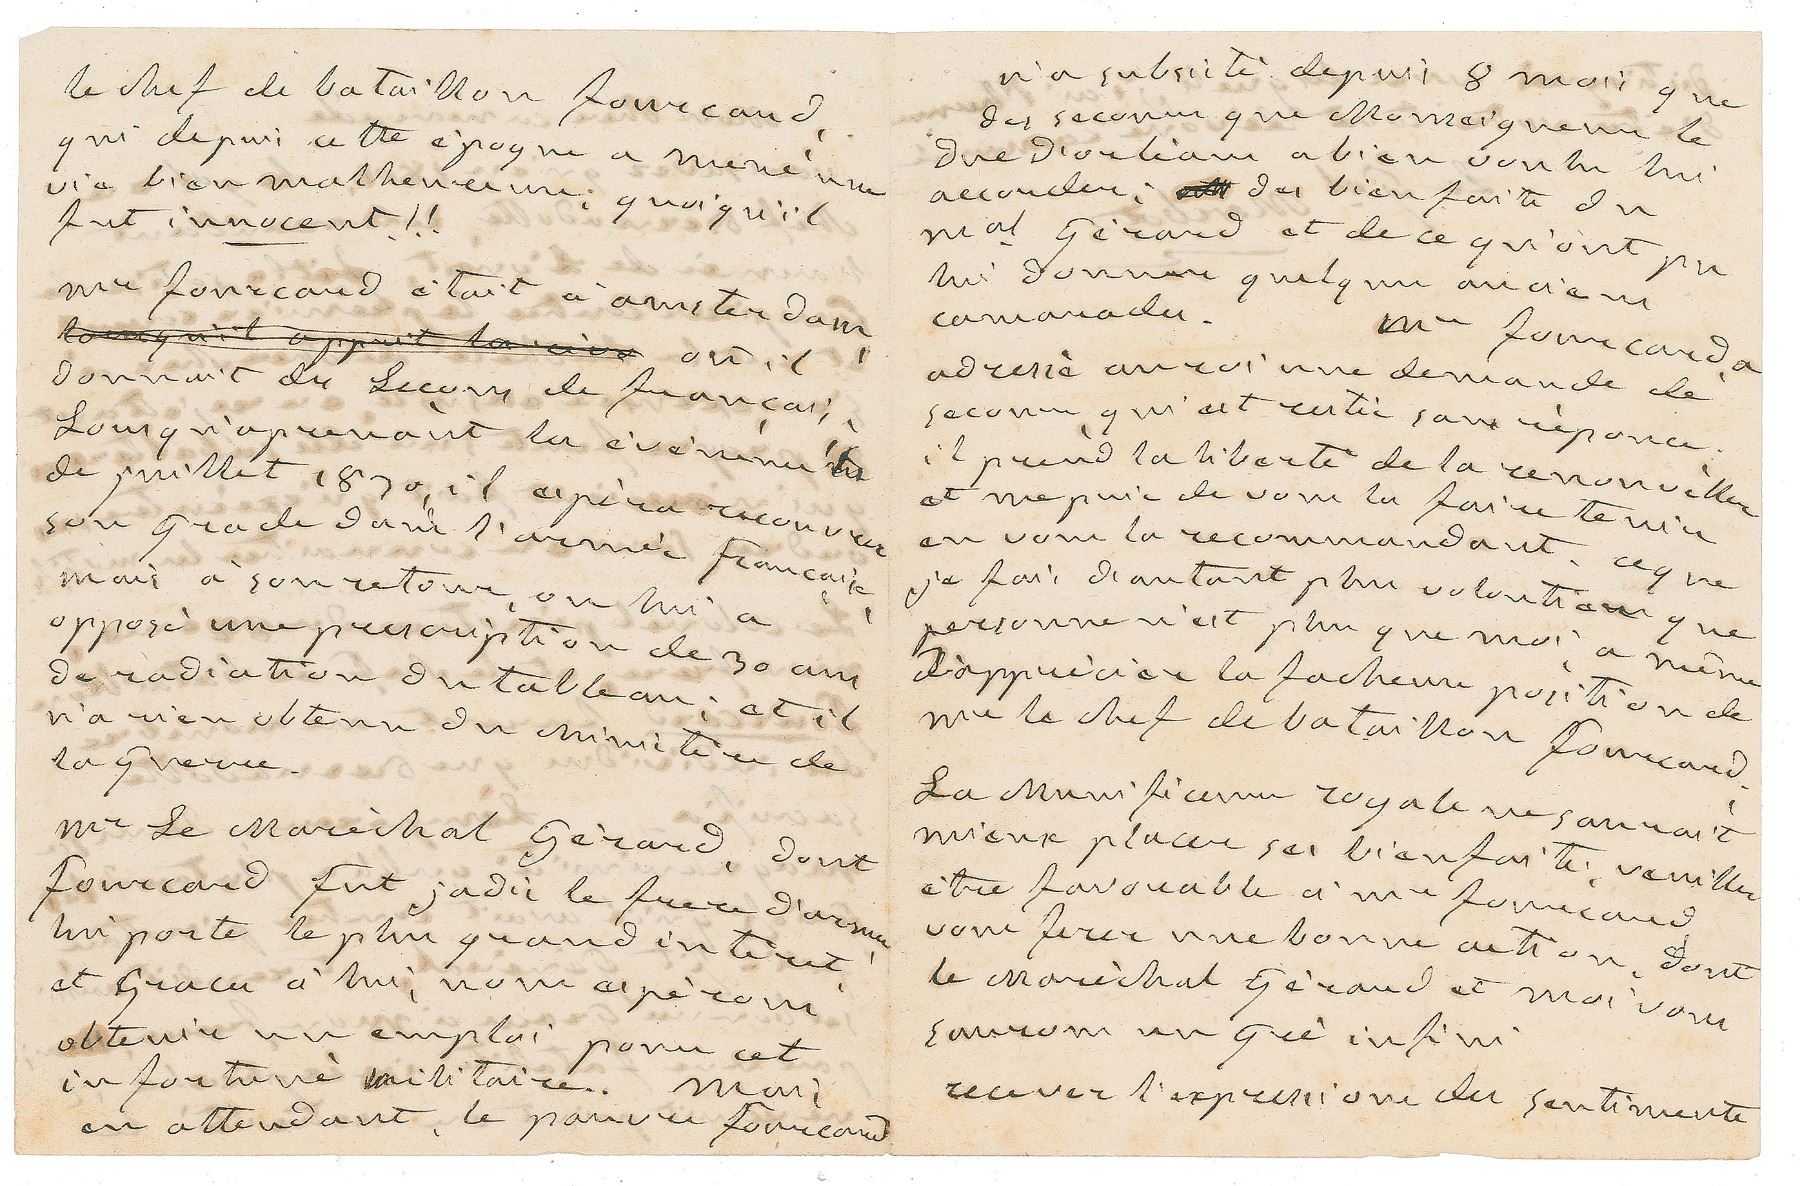 le chef de bataillon fourcaud,
qui depuis cette époque a mené une
vie bien malheureuse; quoiqu'il
fut innocent!!
mr fourcaud était à amsterdam,
lorsqu'il apprit la où il
donnait des Leçons de français,
Lorsqu'aprenant les évènements
de juillet 1830, il espéra recouvrer
son grade dans l'armée française,
mais à son retour, on lui a
opposé une prescription de 30 ans
de radiation du tableau; et il
n'a rien obtenu du Ministère de
la Guerre.
mr Le Maréchal Gérard, dont
fourcaud fut jadis le frère d'armes
lui porte le plus grand intérêt,
et Graces à lui, nous espérons
obtenir un emploi pour cet
infortuné militaire. Mais,
en attendant, le pauvre fourcaud
n'a subsisté depuis 8 mois que
des secours que Monseigneur le
Duc D'orléans a bien voulu lui
accorder; des bienfaits du
mal Gérard et de ce qu'ont pu
lui donner quelques anciens
camarades.
Mr fourcaud a
adressé au roi une demande de
secours qui est restée sans réponce.
il prend la liberté de la renouveller
et me prie de vous la faire tenir
en vous la recommandant. ce que
je fais d'autant plus volontiers que
personne n'est plus que moi, a même
D'apprécier la facheuse position de
mr le chef de bataillon fourcaud.
La Munificence royale ne saurait
mieux placer ses bienfaits, veuillez
être favorable à mr fourcaud
vous ferez une bonne action, Dont
le Maréchal Gérard et moi vous
saurons un Gré infini
recevez l'expressione des sentimente